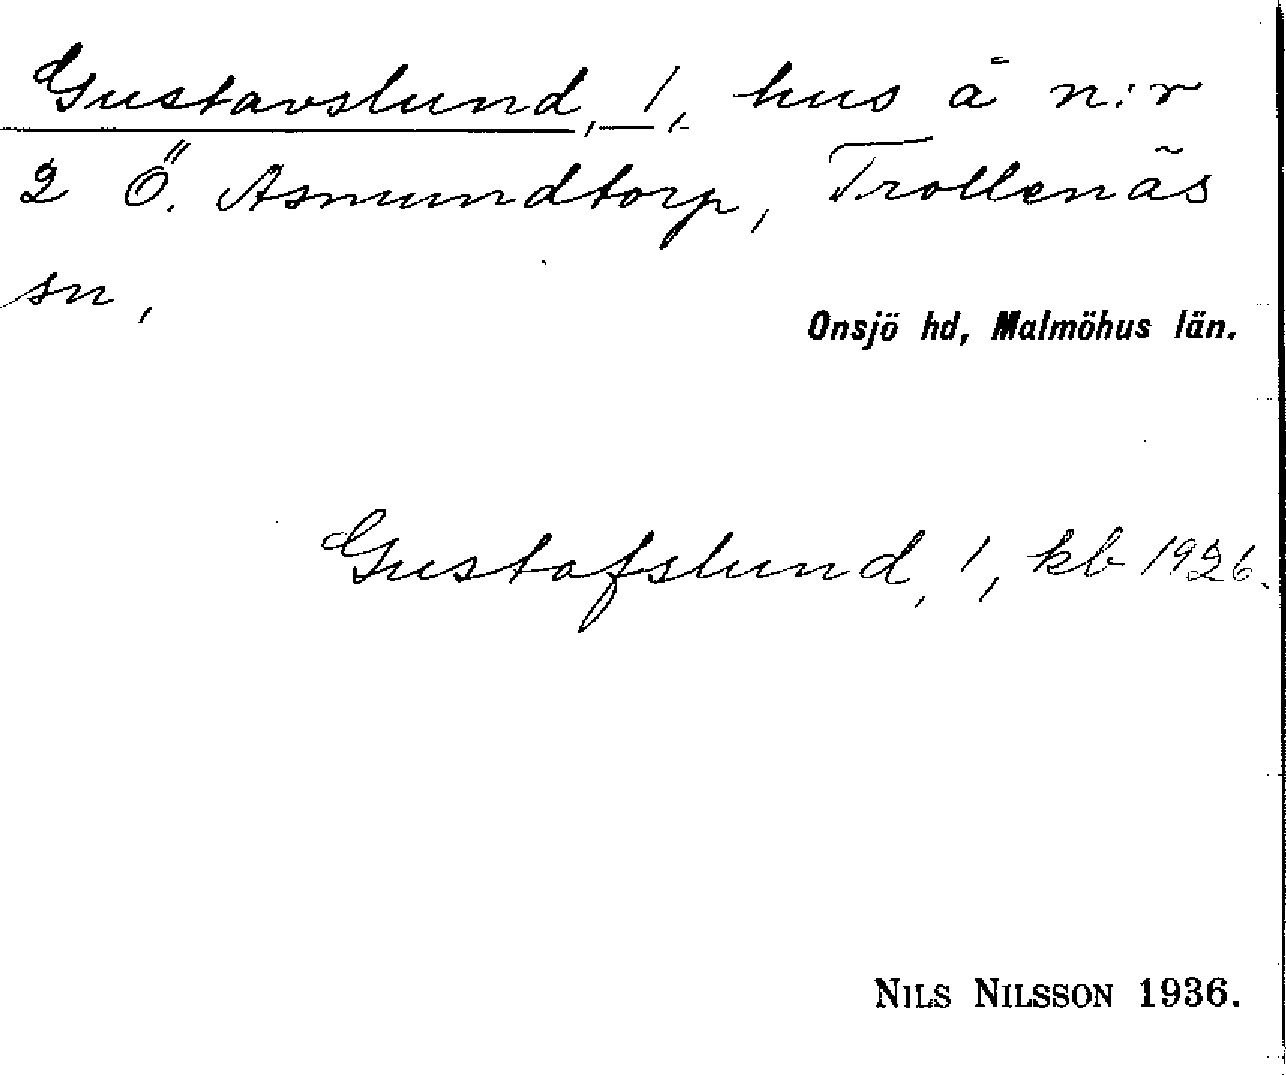 Gustavslund, 1, hus å n:r
2 Ö. Asmundtorp, Trollenäs
sn,
Onsjö hd, Malmöhus län.
Gustafslund, 1, kb 1926.
NILS NILSSON 1936.